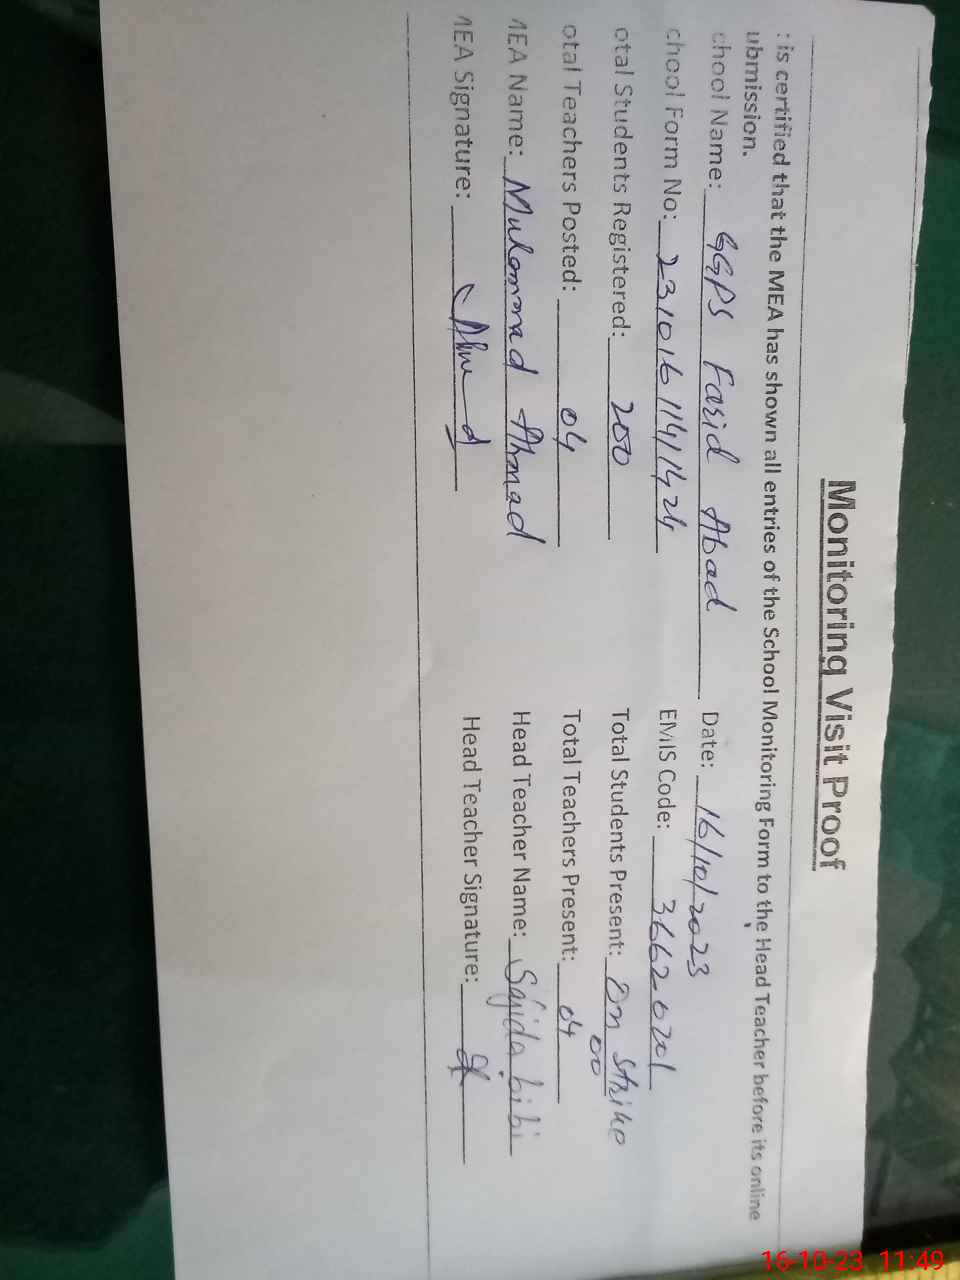 Monitoring Visit Proof
: is certified that the MEA has shown all entries of the School Monitoring Form to the Head Teacher before its online
ubmission.
chool Name: GGPS Farid Abad Date: 16/10/2023
chool Form No: EMIS Code: 36620201
otal Students Registered: 200 Total Students Present: On Strike
00
otal Teachers Posted: 04 Total Teachers Present: 04
MEA Name: Muhammad Ahmad Head Teacher Name: Sajida bibi
MEA Signature: Ahmad Head Teacher Signature:
16-10-23 11:49